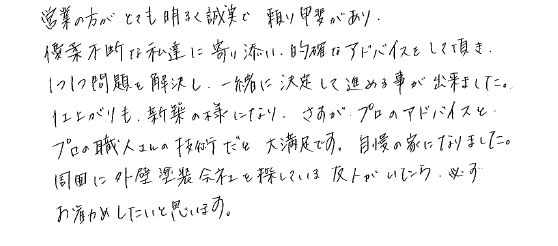 営業の方がとても明るく誠実で頼り甲斐があり、
優柔不断な私達に寄り添い、的確なアドバイスをして頂き、
1つ1つ問題を解決し、一緒に決定して進める事が出来ました。
仕上がりも、新築の様になり、さすが、プロのアドバイスと、
プロの職人さんの技術だと大満足です。自慢の家になりました。
周囲に外壁塗装会社を探している友人がいたら、必ず
お勧めしたいと思います。